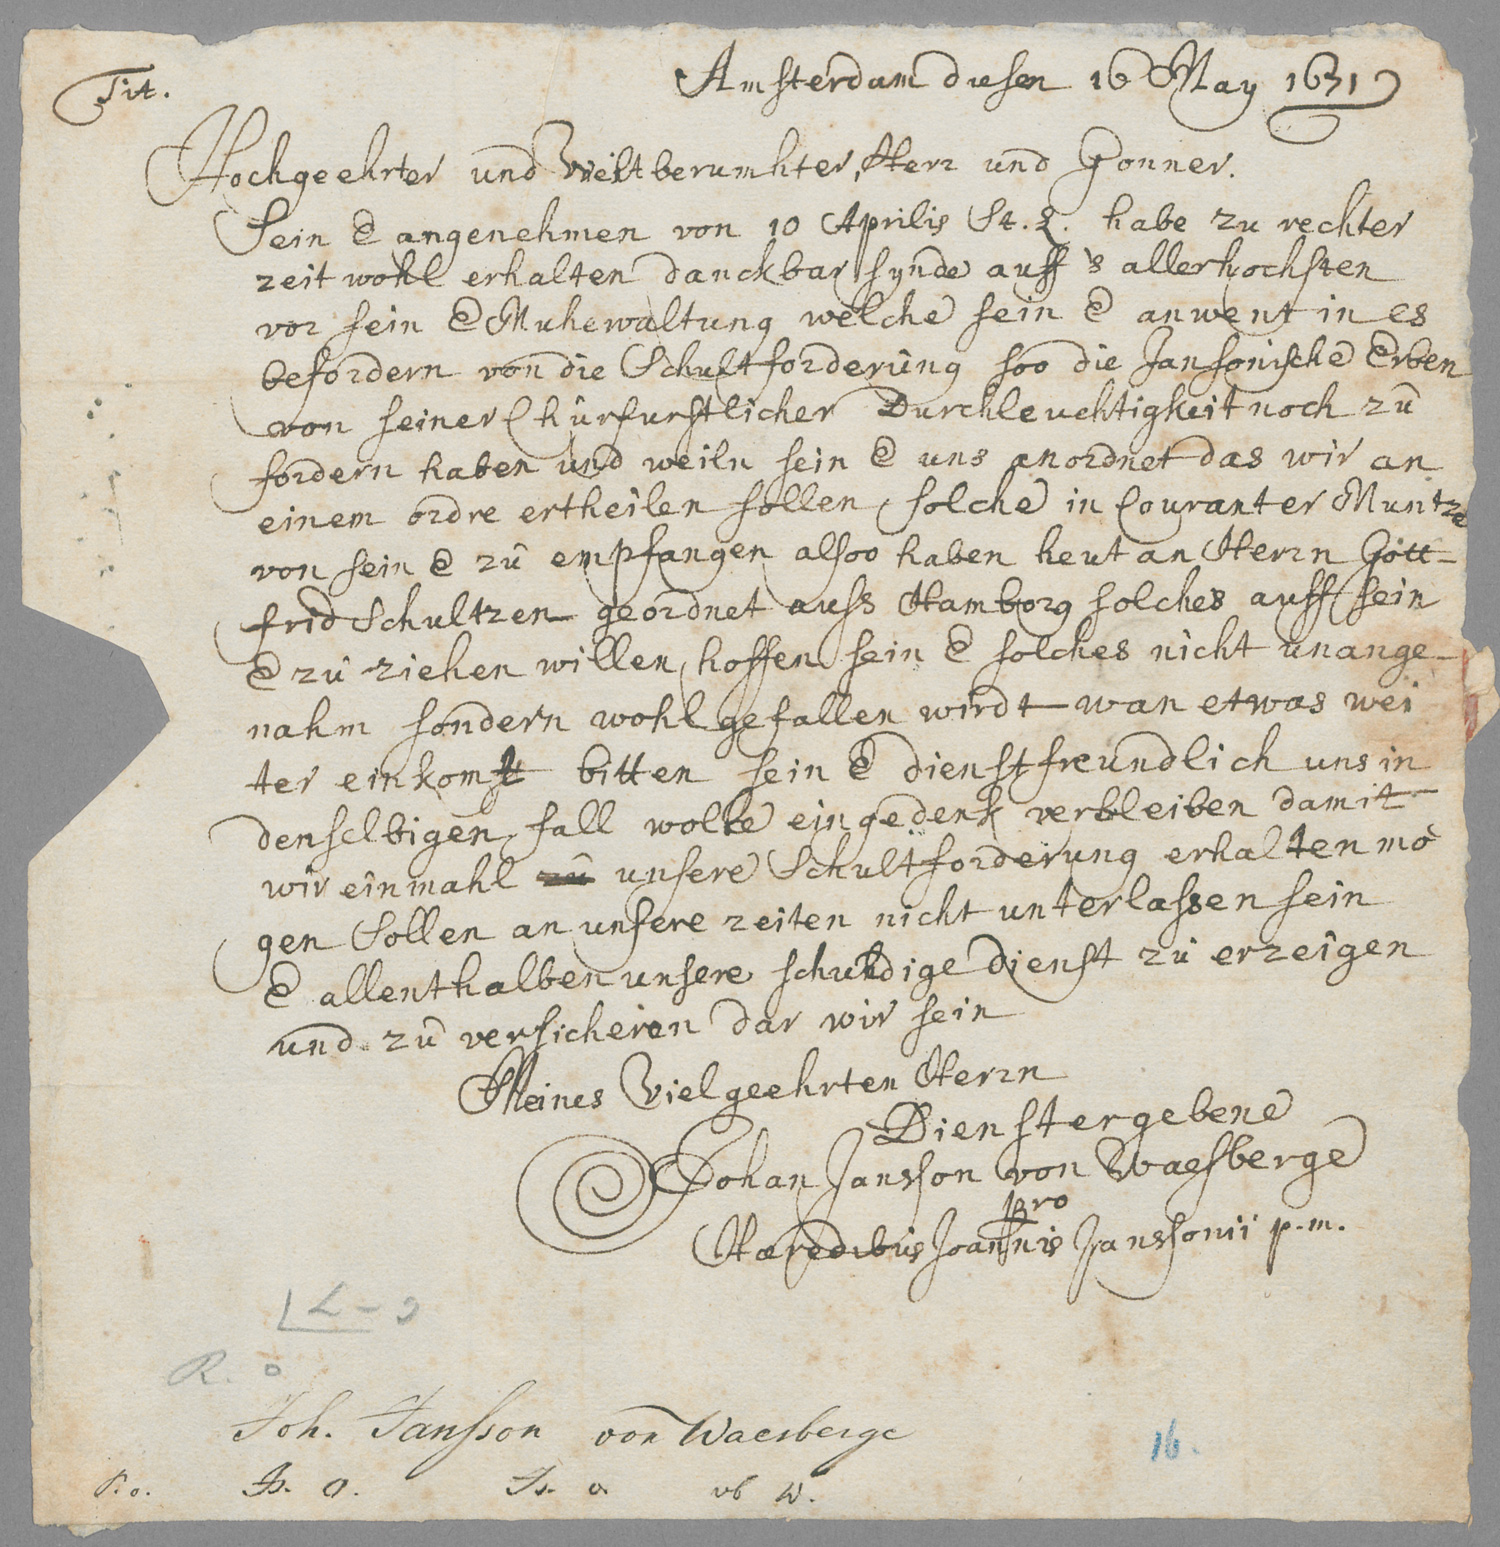 Tit.
Amsterdam diesen 16 May 1671
Hochgeehrter und Weitberumhter, Herr und Gonner.
Sein E angenehmen von 10 Aprilis St. L. habe zu rechter
zeit wohl erhalten danckbar synde auff 's allerhochsten
vor sein E Muhewaltung welche sein E anwent in es
befordern von die Schultforderung soo die Jansonische Erben
von seiner Churfurstlicher Durchleuchtigkeit noch zu
fordern haben und weiln sein E uns anordnet das wir an
einem ordre ertheilen sollen solche in Couranter Muntze
von sein E zu empfangen alsoo haben heut an Herrn Gott-
frid Schultzen geordnet auss Hamborg solches auff sein
E zu ziehen willen hoffen sein E solches nicht unange-
nahm sondern wohlgefallen wirdt wan etwas wei
ter einkomst bitten sein E dienstfreundlich uns in
denselbigen fall wolle eingedenk verbleiben damit
wir einmahl zu unsere Schultforderung erhalten mo
gen Sollen an unsere zeiten nicht unterlassen sein
E allenthalben unsere schuldige Dienst zu erzeigen
und zu versicheren dar wir sein
Meines Vielgeehrten Herrn
Dienstergebene
Johan Jansson von Waesberge
pro
Haeredibus Joannis Janssonii p.m.
L - 9
R. o
Joh. Jansson von Waesberge
16.